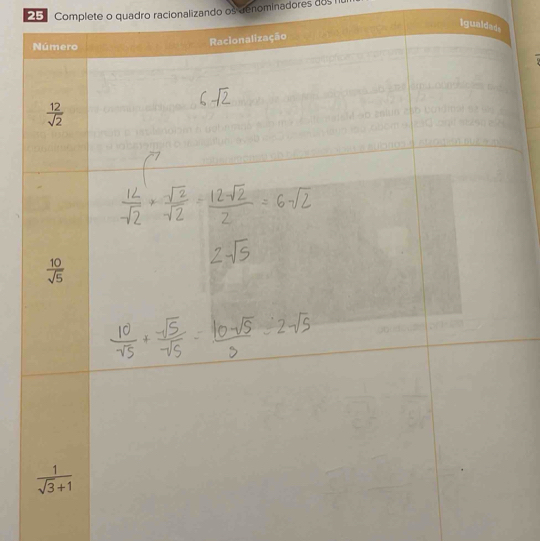 25 Complete o quadro racionalizando os denominadores dos
Número Racionalização Igualdade
12/√2 6√2
12/√2 · √2/√2 = 12√2/2 = 6√2
10/√5 2√5
10/√5 · √5/√5 = 10√5/5 = 2√5
1/(√3+1)